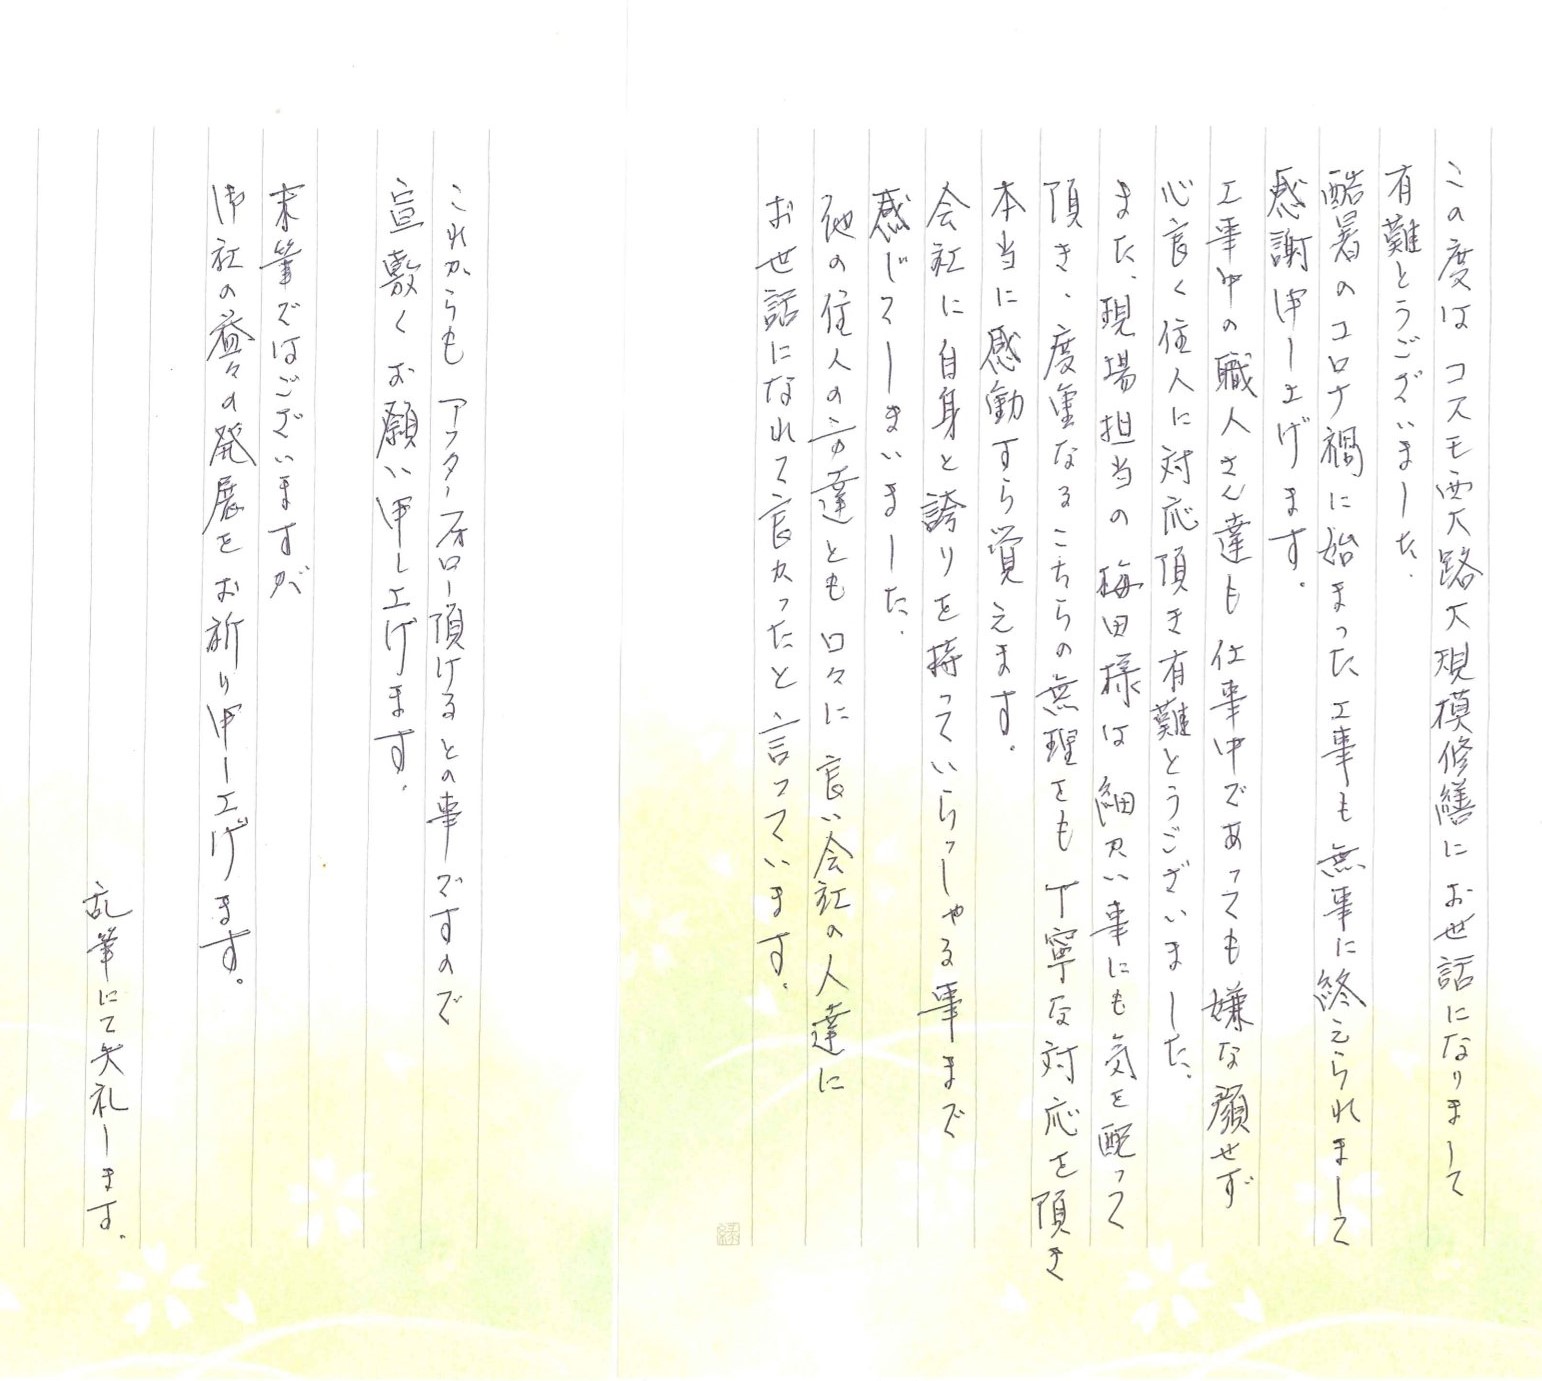 この度は コスモ西大路大規模修繕に お世話になりまして
有難とうございました.
酷暑のコロナ禍に始まった工事も 無事に終えられまして
感謝申し上げます.
工事中の職人さん達も 仕事中であっても 嫌な顔せず
心良く住人に対応頂き有難とうございました.
また、現場担当の 梅田様は 細かい事にも気を配って
頂き、度重なるこちらの無理をも 丁寧な対応を頂き
本当に感動すら覚えます。
会社に自身と誇りを持っていらっしゃる事まで
感じてしまいました.
他の住人の方達とも 口々に 良い会社の人達に
お世話になれて良かったと 言っています.
これからも アフターフォロー頂けるとの事ですので
宣敷くお願い申し上げます.
末筆ではございますが
御社の益々の発展を お祈り申し上げます。
乱筆にて失礼します.
縁